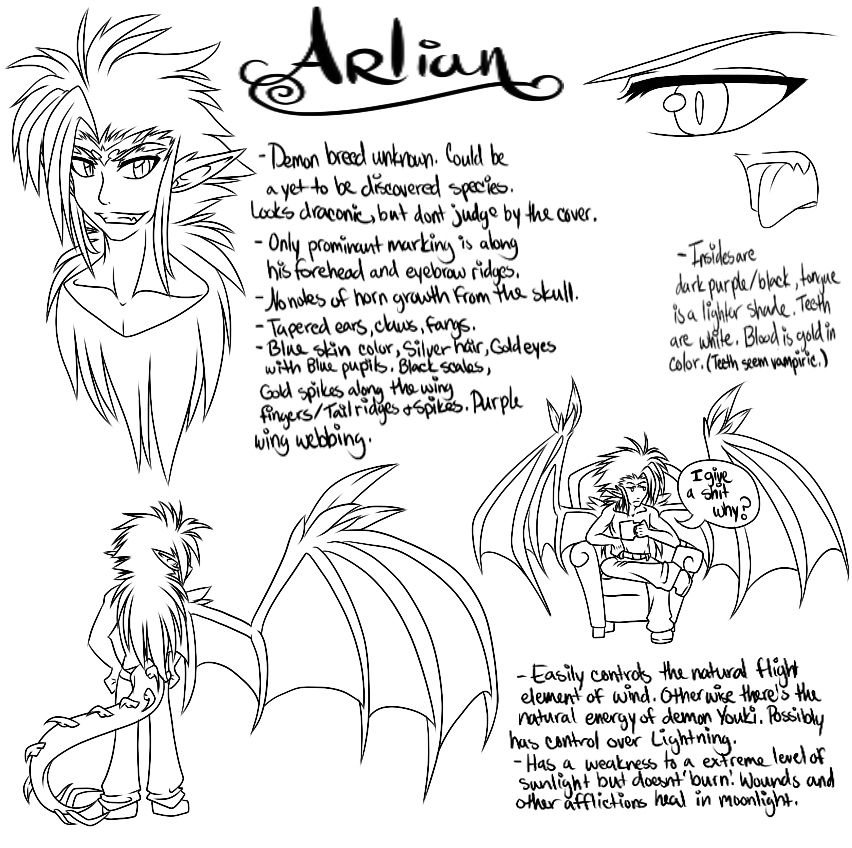 Arlian
- Demon breed unknown. Could be
a yet to be discovered species.
Looks draconic, but dont judge by the cover.
- Only prominant marking is along
his forehead and eyebrow ridges.
- No notes of horn growth from the skull.
- Tapered ears, claws, fangs.
- Blue skin color, Silver hair, Gold eyes
with Blue pupils. Black scales,
Gold spikes along the wing
fingers/Tail ridges & spikes. Purple
wing webbing.
- Insides are
dark purple/black, tongue
is a lighter shade. Teeth
are white. Blood is gold in
color. (Teeth seem vampiric.)
I give
a shit
why?
- Easily controls the natural flight
element of wind. Otherwise there's the
natural energy of demon Youki. Possibly
has control over Lightning.
- Has a weakness to a extreme level of
sunlight but doesnt 'burn'. Wounds and
other afflictions heal in moonlight.